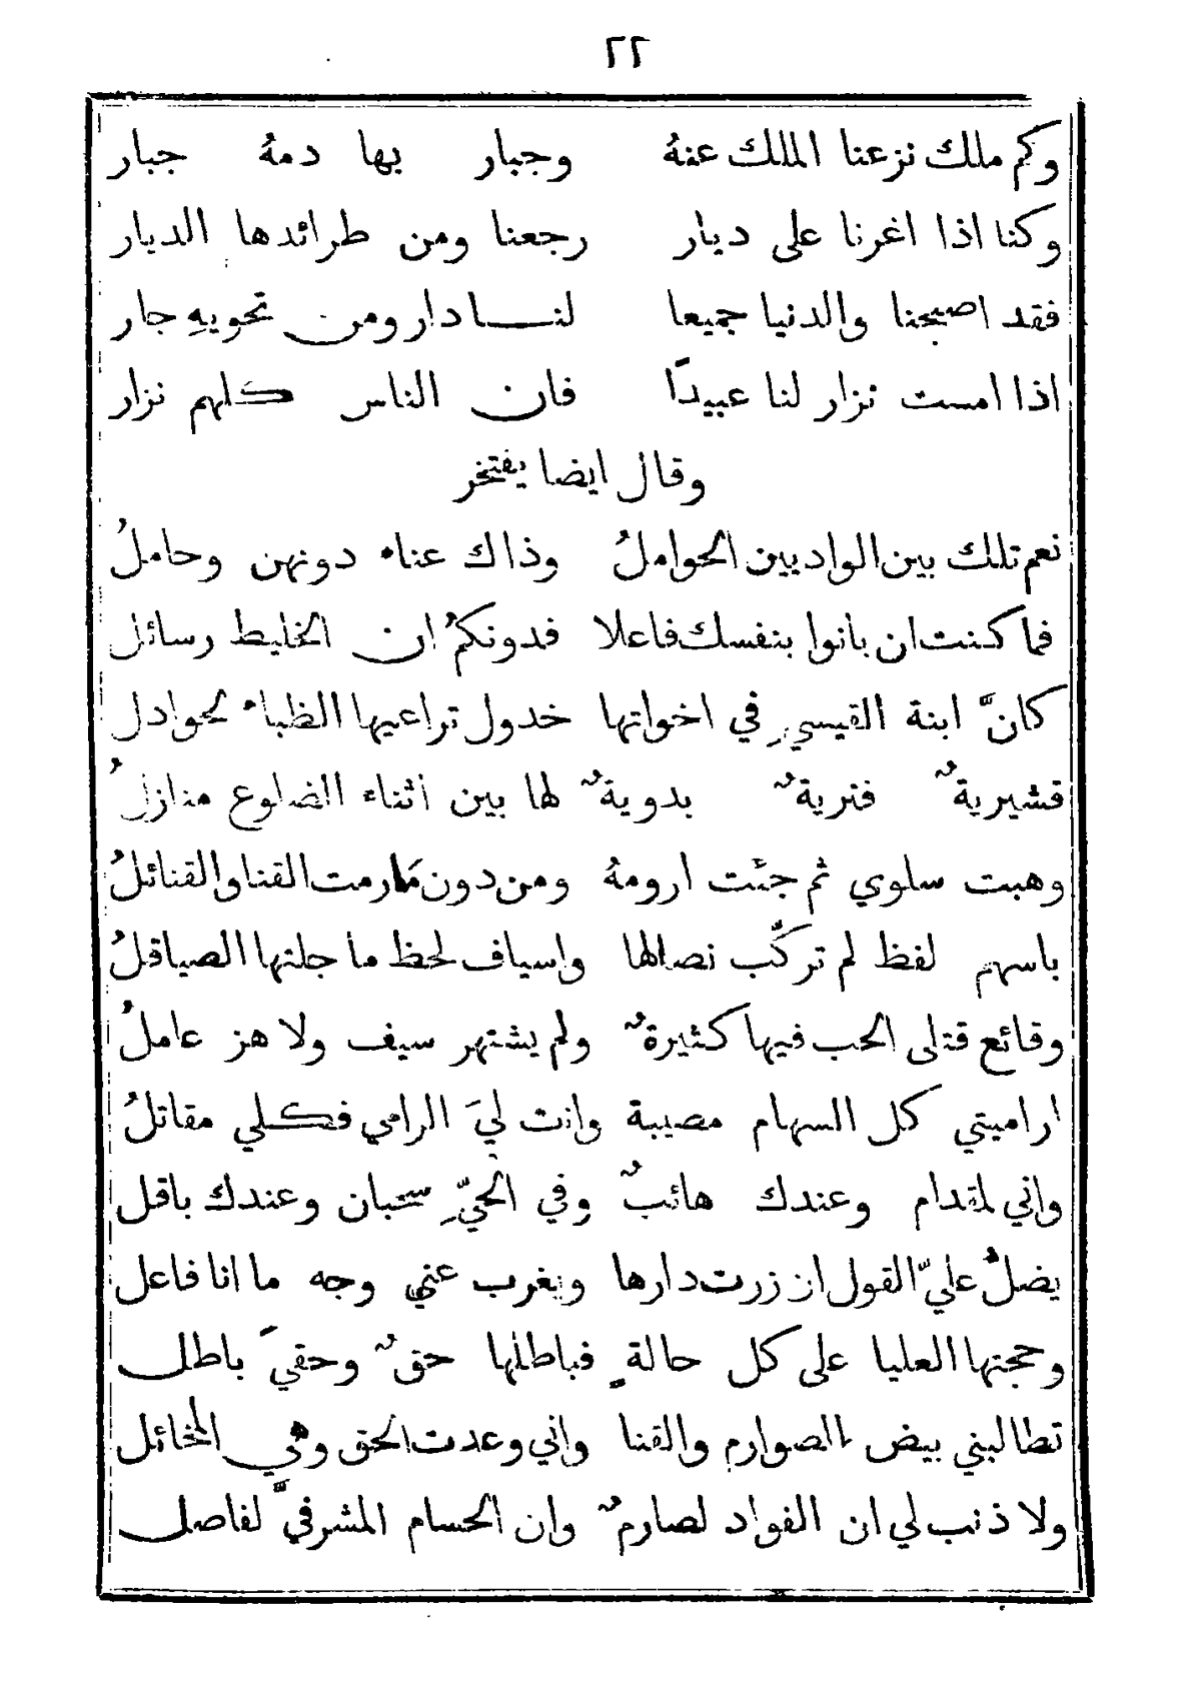 ٢٢
وكم ملك نزعنا الملك عنهُ وجبار بها دمهُ جبار
وكنا اذا اغرنا على ديار رجعنا ومن طرائدها الديار
فقد اصبحنا والدنيا جميعا لنــا دار ومن تحويهِ جار
اذا امست نزار لنا عبيدًا فان الناس كلهم نزار
وقال ايضا يفتخر
نعم تلك بين الواديين الحواملُ وذاك عناء دونهن وحاملُ
فما كنت ان بانوا بنفسك فاعلا فدونكمُ ان الخليط رسائل
كانَّ ابنة القيسيِ في اخواتها خدول تراعيها الظباء لحوادل
قشيريةٌ فتريةٌ بدويةٌ لها بين أثناء الضلوع منازلُ
وهبت سلوي ثم جئت ارومهُ ومن دون مَا رمت القنا والقنائلُ
باسهم لفظ لم تركَّب نصالها واسياف لحظ ما جلتها الصياقلُ
وقائع قتلى الحب فيها كثيرةٌ ولم يشتهر سيف ولا هز عاملُ
اراميتي كل السهام مصيبة وانت ليَ الرامي فكلي مقاتلُ
واني لمقدام وعندك هائبٌ وفي الحيِّ سحبان وعندك باقل
يضلُّ عليّ القول ان زرت دارها ويغرب عني وجه ما انا فاعل
وحجتها العليا على كل حالةٍ فباطلها حقٌ وحقيَ باطل
تطالبني بيض الصوارم والقنا واني وعدت الحق وهي المخائل
ولا ذنب لي ان الفواد لصارمٌ وان الحسام المشرفيَّ لفاصل